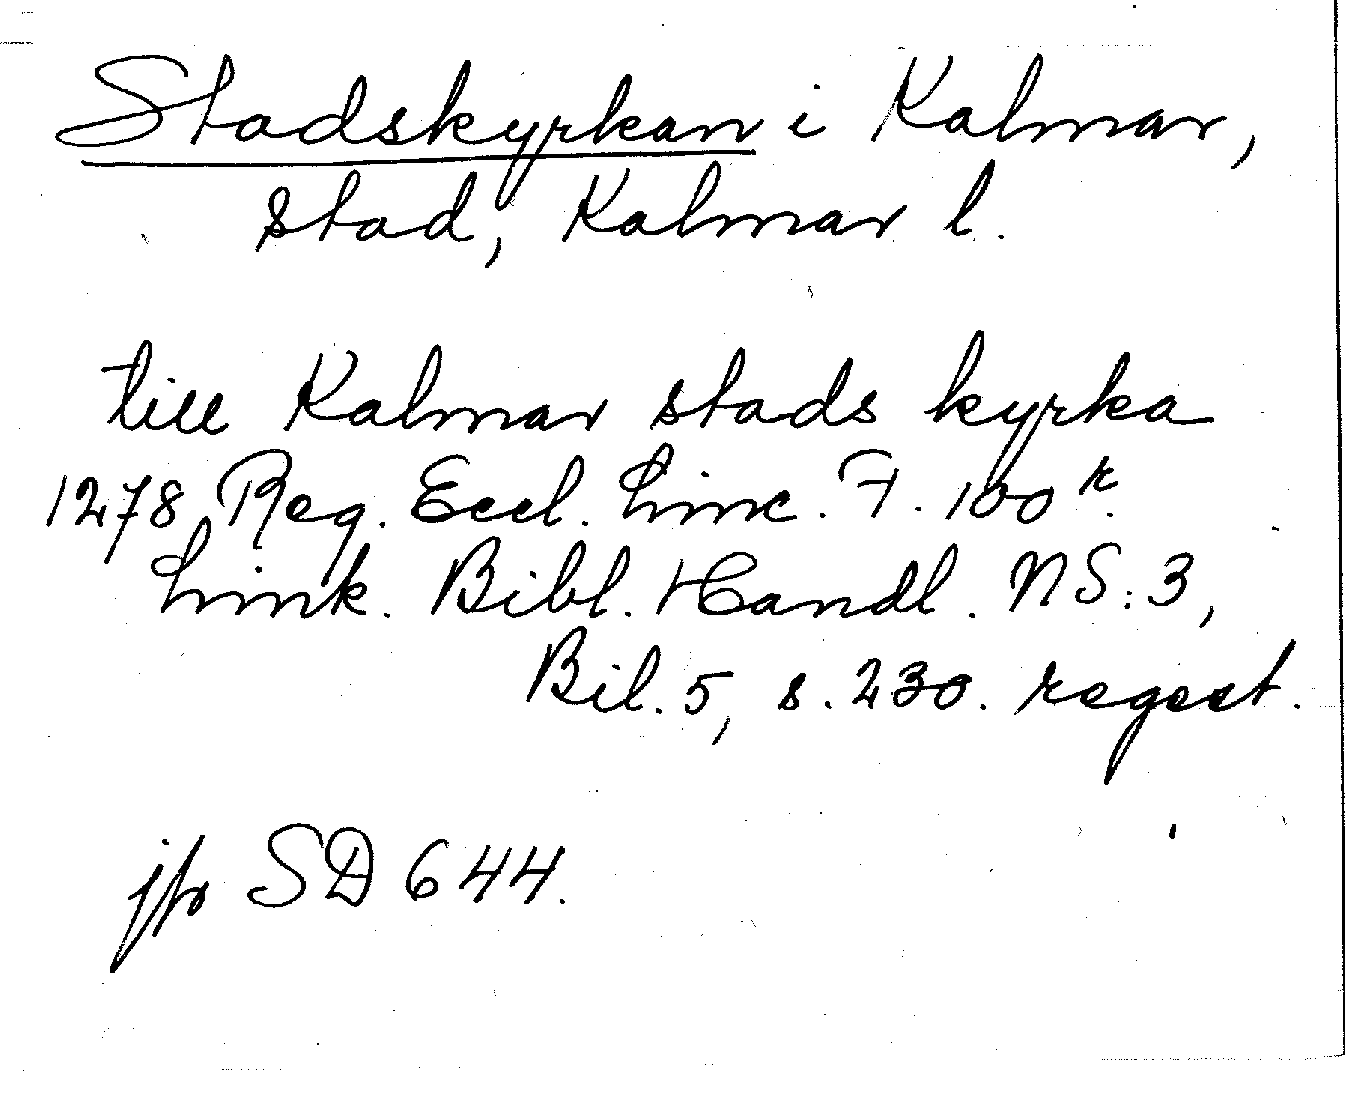 Stadskyrkan i Kalmar,
stad, Kalmar l.
till Kalmar stads kyrka
1278 Reg. Eccl. Linc. F. 100 r.
Link. Bibl. Handl. NS:3,
Bil. 5, s. 230. regest.
jfr SD 644.